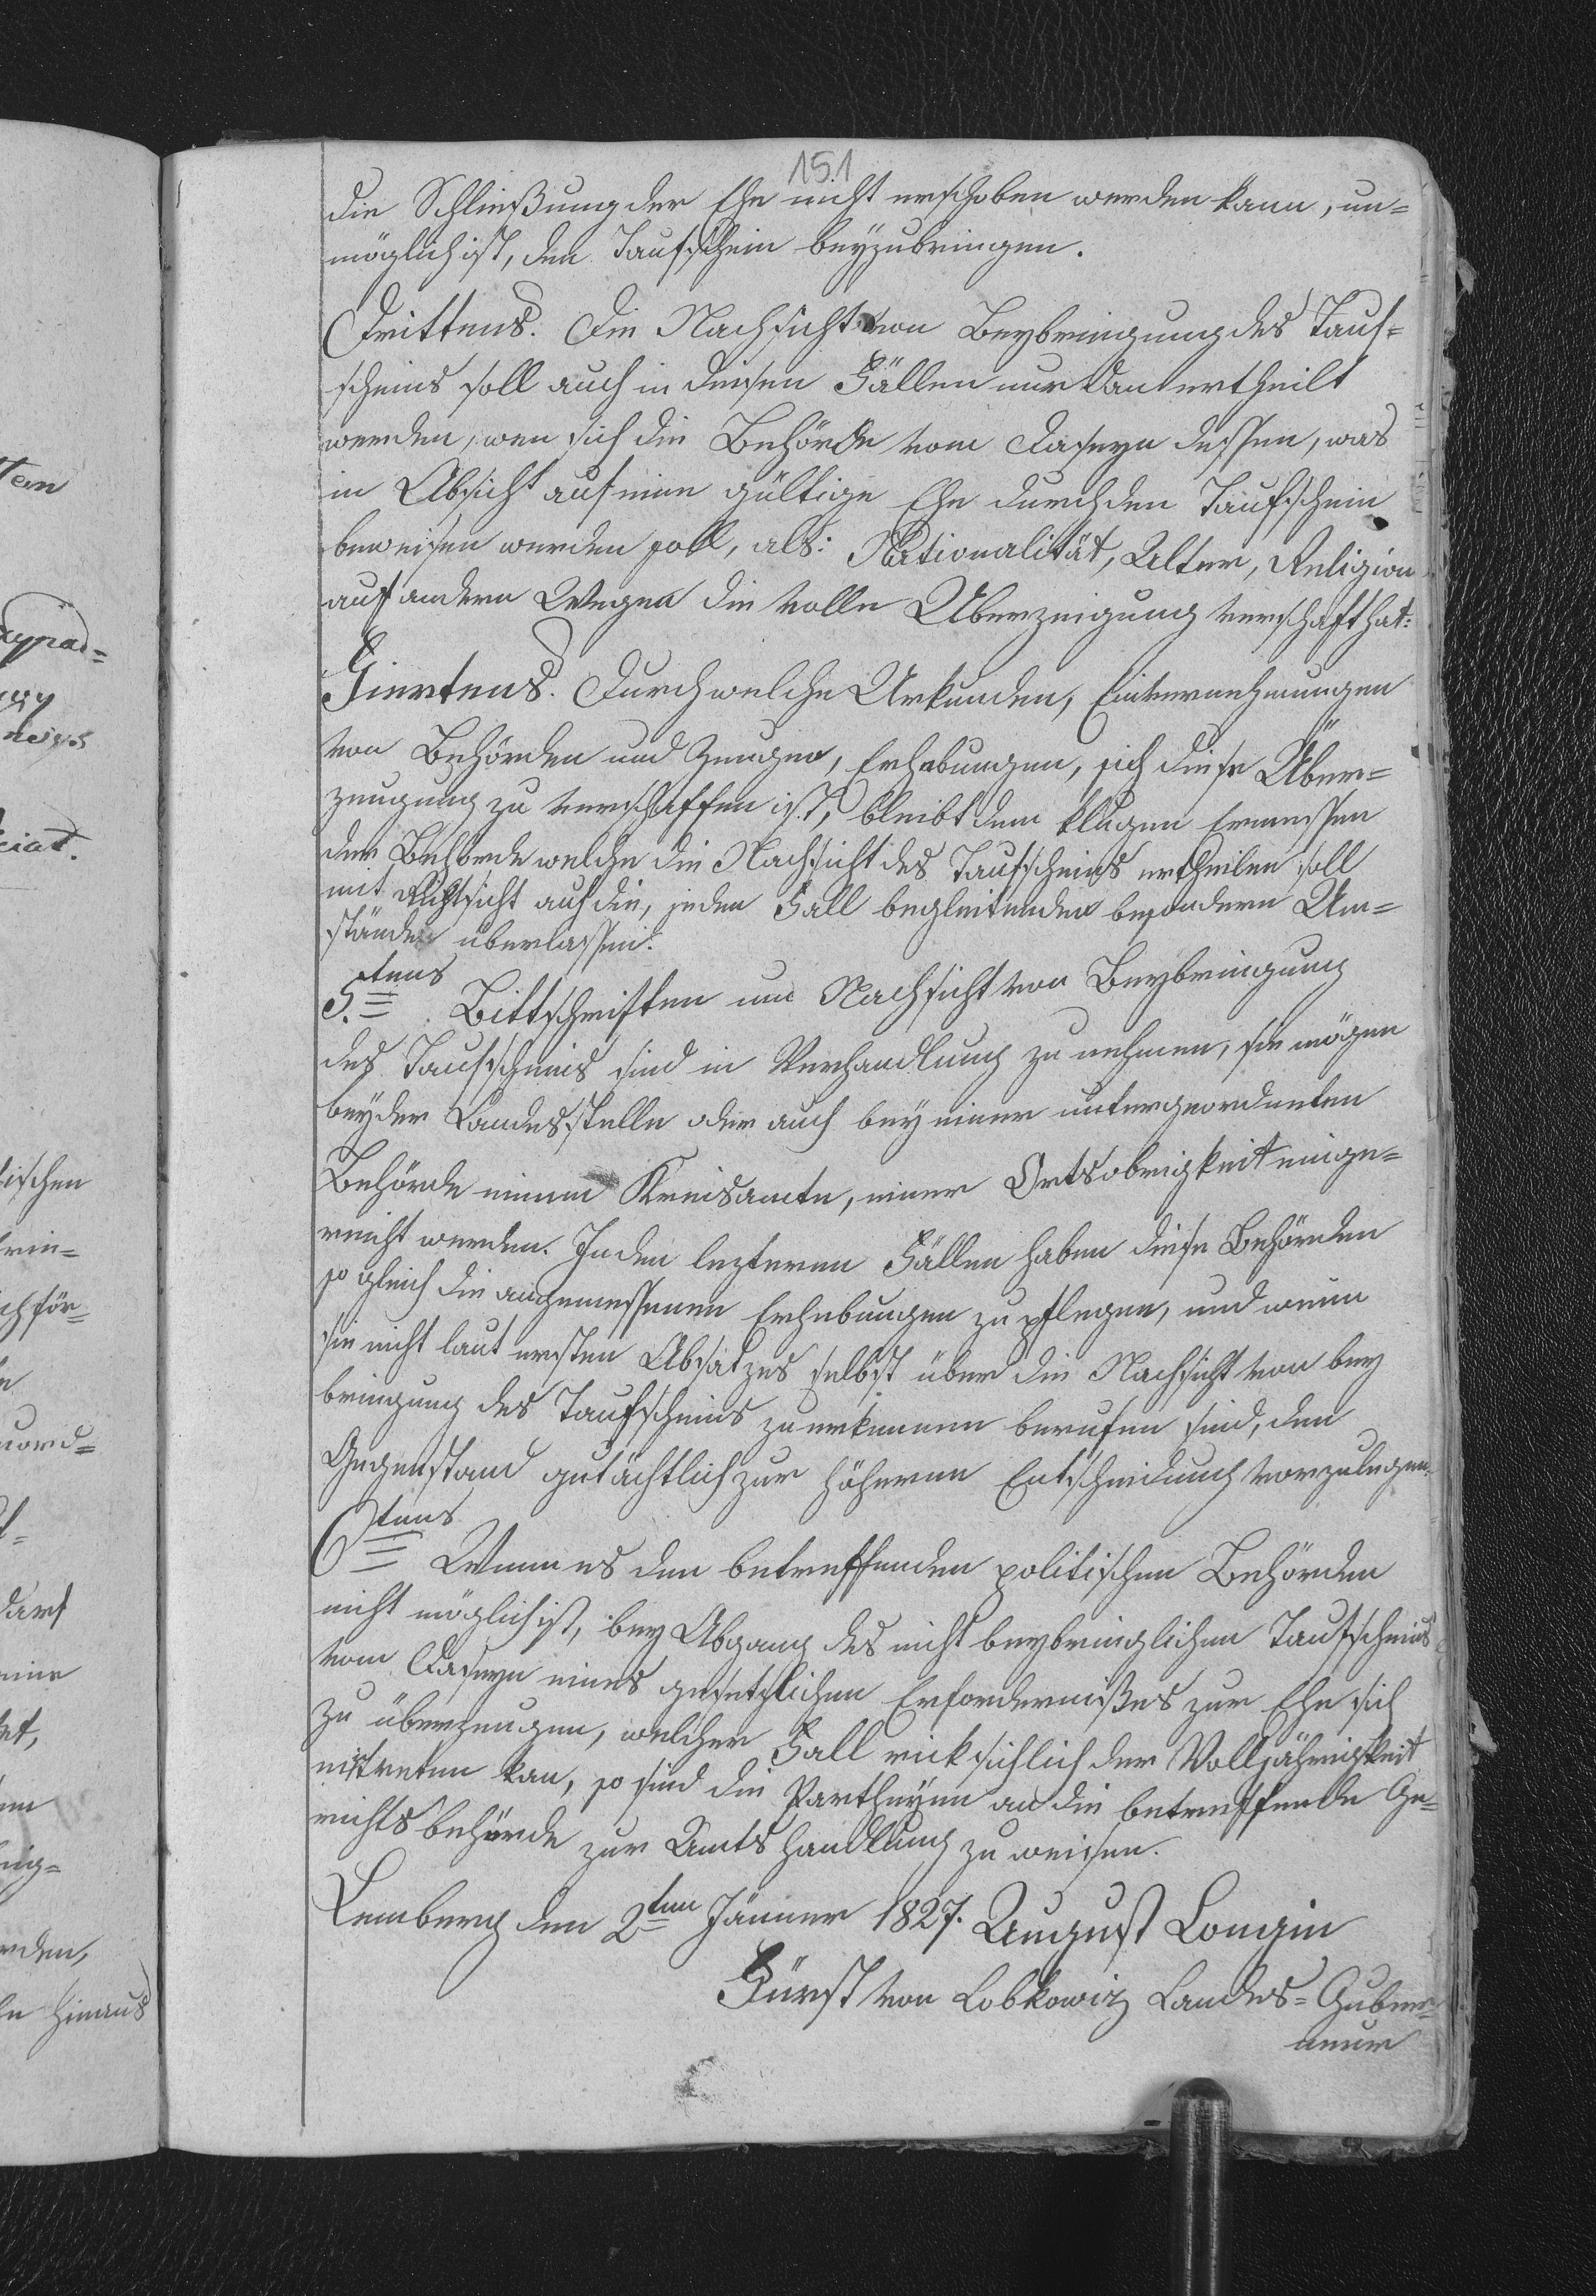 151
die Schließung der Ehe nicht erschoben werden kann, un=
möglich ist, den Taufschein beyzubringen.
Drittens. Die Nachsicht von Beybringung des Tauf=
scheins soll auch in diesen Fällen nur dan ertheilt
werden, wen sich die Behörde vom Daseyn dessen, was
in Absicht auf eine gültige Ehe durch den Taufschein
bewiesen werden soll, als: Nationalität, Alter, Religion
auf andern Wegen die volle Uberzeigung verschafft hat:
Viertens. Durch welche Urkunden, Einvernehmungen
von Behörden und Zeugen, Erhebungen, sich diese Über=
zeugung zu verschaffen ist, bleibt dem klugen Ermessen
der Behörde welche die Nachsicht des Taufscheins ertheilen soll
mit Rücksicht auf die, jeden Fall begleitenden besondern Um=
stände überlassen.
5.tens. Bittschriften um Nachsicht von Beybringung
des Taufscheins sind in Verhandlung zu nehmen, sie mögen
bey der Landesstelle oder auch bey einer untergeordneten
Behörde einem Kreisamte, einer Ortsobrigkeit einge=
reicht werden. In den lezteren Fällen haben diese Behörden
so gleich die angemessenen Erhebungen zu pflegen, und wenn
sie nicht laut ersten Absatzes selbst über die Nachsicht von bey
bringung des Taufscheins zu erkennen berufen sind, den
Gegenstand gutächtlich zur höheren Entscheidung vorzulegen.
6tens Wenn es den betreffenden politischen Behörden
nicht möglich ist, bey Abgang des nicht beybringlichen Taufscheins
vom Daseyn eines gesetzlichen Erfordernißes zur Ehe sich
zu überzeugen, welcher Fall rücksichlich der Volljährigkeit
eintreten kan, so sind die Partheyen an die betreffende Ge=
richts behörde zur Amtshandlung zu weisen.
Lemberg den 2ten Jänner 1827. August Longin
Fürst von Lobkowitz Landes=Guber=
neur